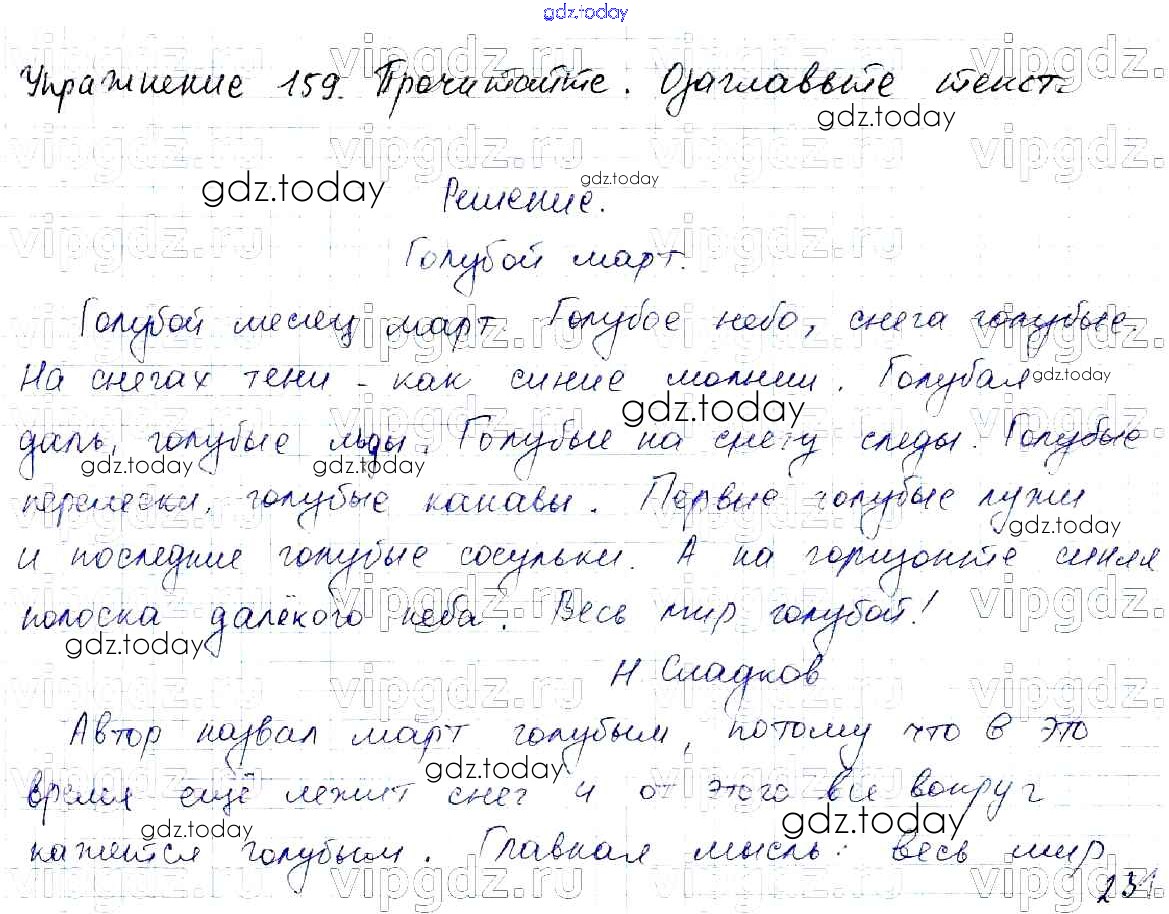 gdz.today
Упражнение 159. Прочитайте. Озаглавьте текст.
Решение.
Голубой март.
Голубой месяц март. Голубое небо, снега голубые.
На снегах тени - как синие молнии. Голубая
даль, голубые льды. Голубые на снегу следы. Голубые
перелески, голубые канавы. Первые голубые лужи
и последние голубые сосульки. А на горизонте синяя
полоска далёкого неба. Весь мир голубой!
Н Сладков
Автор назвал март голубым, потому что в это
время ещё лежит снег и от этого все вокруг
кажется голубым. Главная мысль: весь мир
231
vipgdz.ru
gdz.today